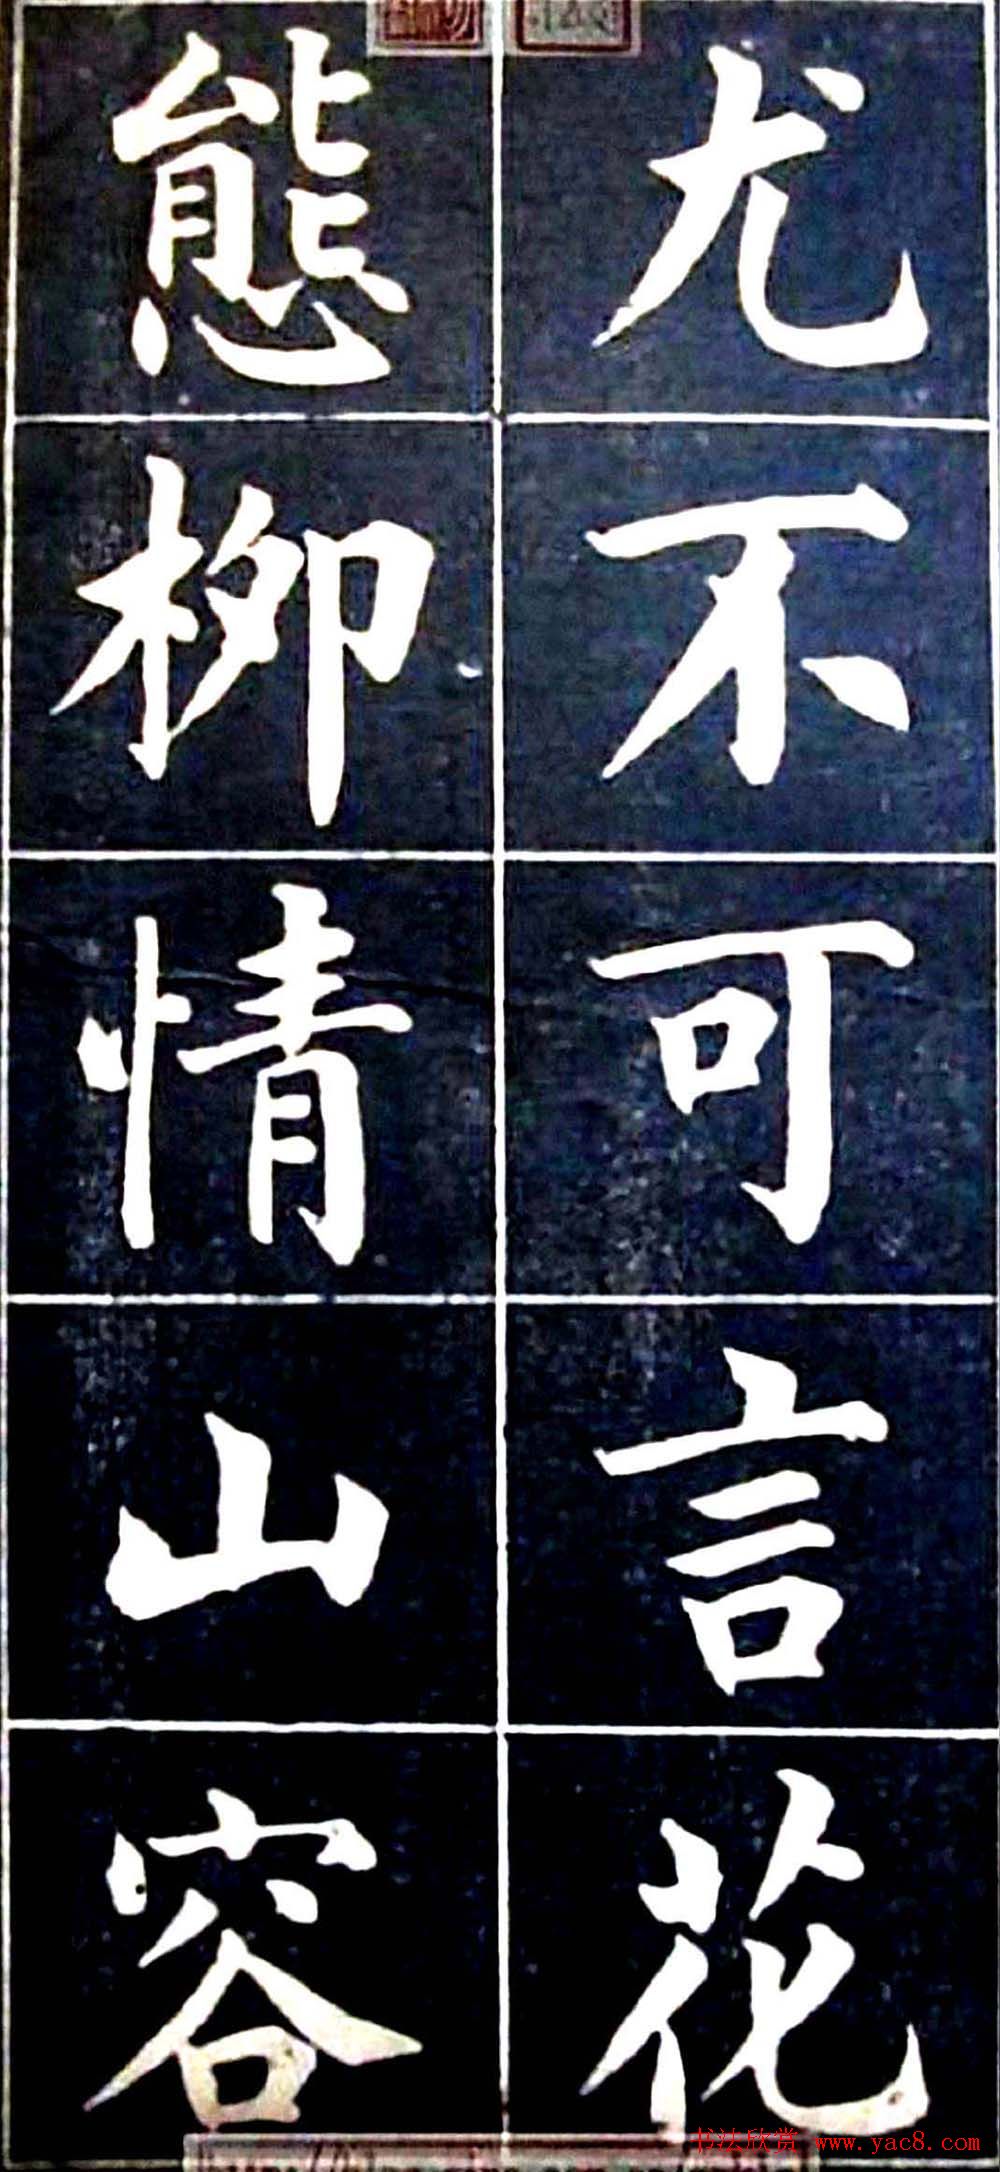 尤不可言花
態柳情山容
书法欣赏 www.yac8.com